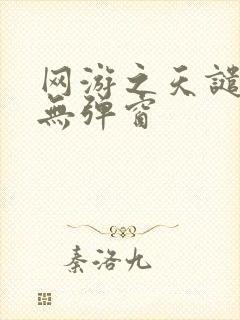 网游之天譴
無弹窗
秦洛九